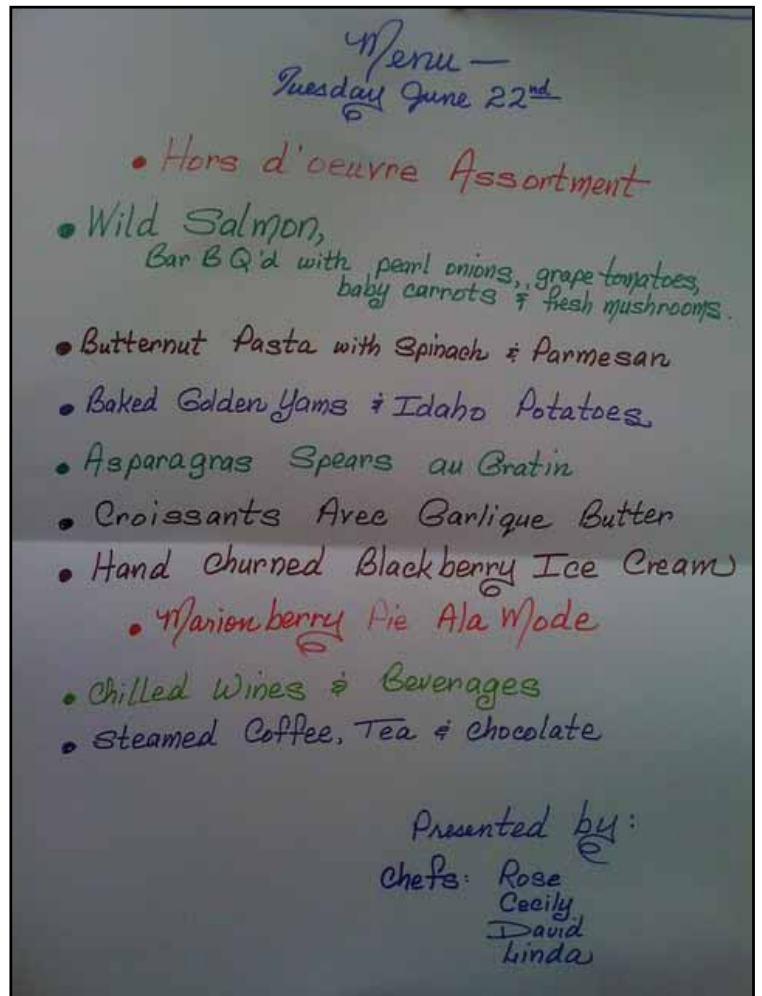 Menu —
Tuesday June 22nd
• Hors d'oeuvre Assortment
• Wild Salmon,
Bar B Q'd with pearl onions, grape tomatoes,
baby carrots & fresh mushrooms.
• Butternut Pasta with Spinach & Parmesan
• Baked Golden Yams & Idaho Potatoes
• Asparagras Spears au Gratin
• Croissants Avec Garlique Butter
• Hand Churned Blackberry Ice Cream
• Marionberry Pie Ala Mode
• Chilled Wines & Beverages
• Steamed Coffee, Tea & Chocolate
Presented by:
Chefs: Rose
Cecily
David
Linda